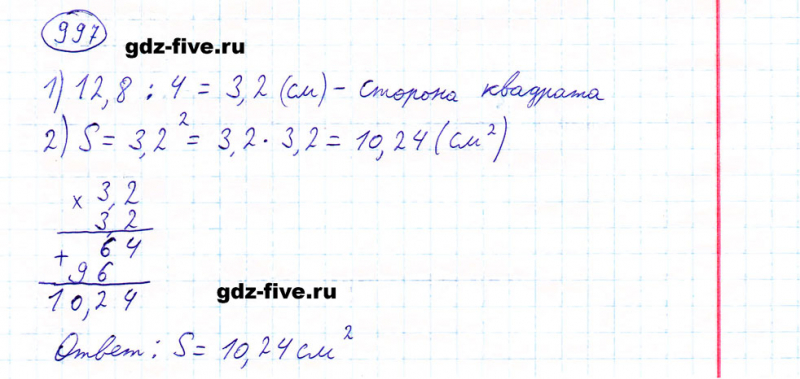 997
gdz-five.ru
1) 12,8 : 4 = 3,2 (см) - сторона квадрата
2) S = 3,2² = 3,2 · 3,2 = 10,24 (см²)
× 3,2
3,2
+ 64
96
10,24
gdz-five.ru
Ответ: S = 10,24 см²